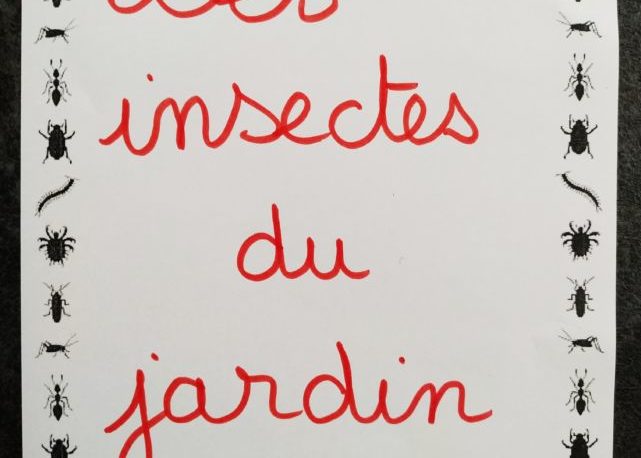 insectes
du
jardin